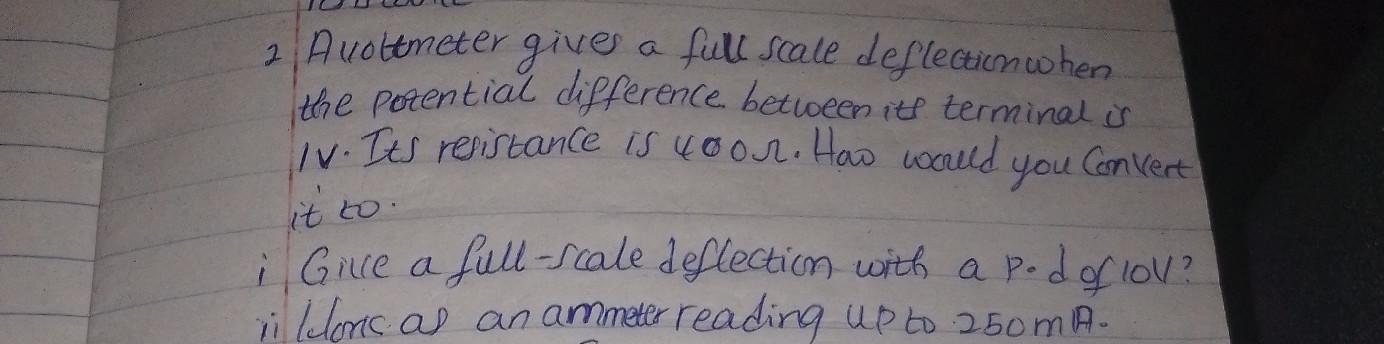 2 A voltmeter gives a full scale deflection when
the potential difference between its terminal is
1V. Its resistance is 400Ω. How would you Convert
it to.
i Give a full-scale deflection with a p.d of 10V?
ii Work as an ammeter reading up to 250mA.